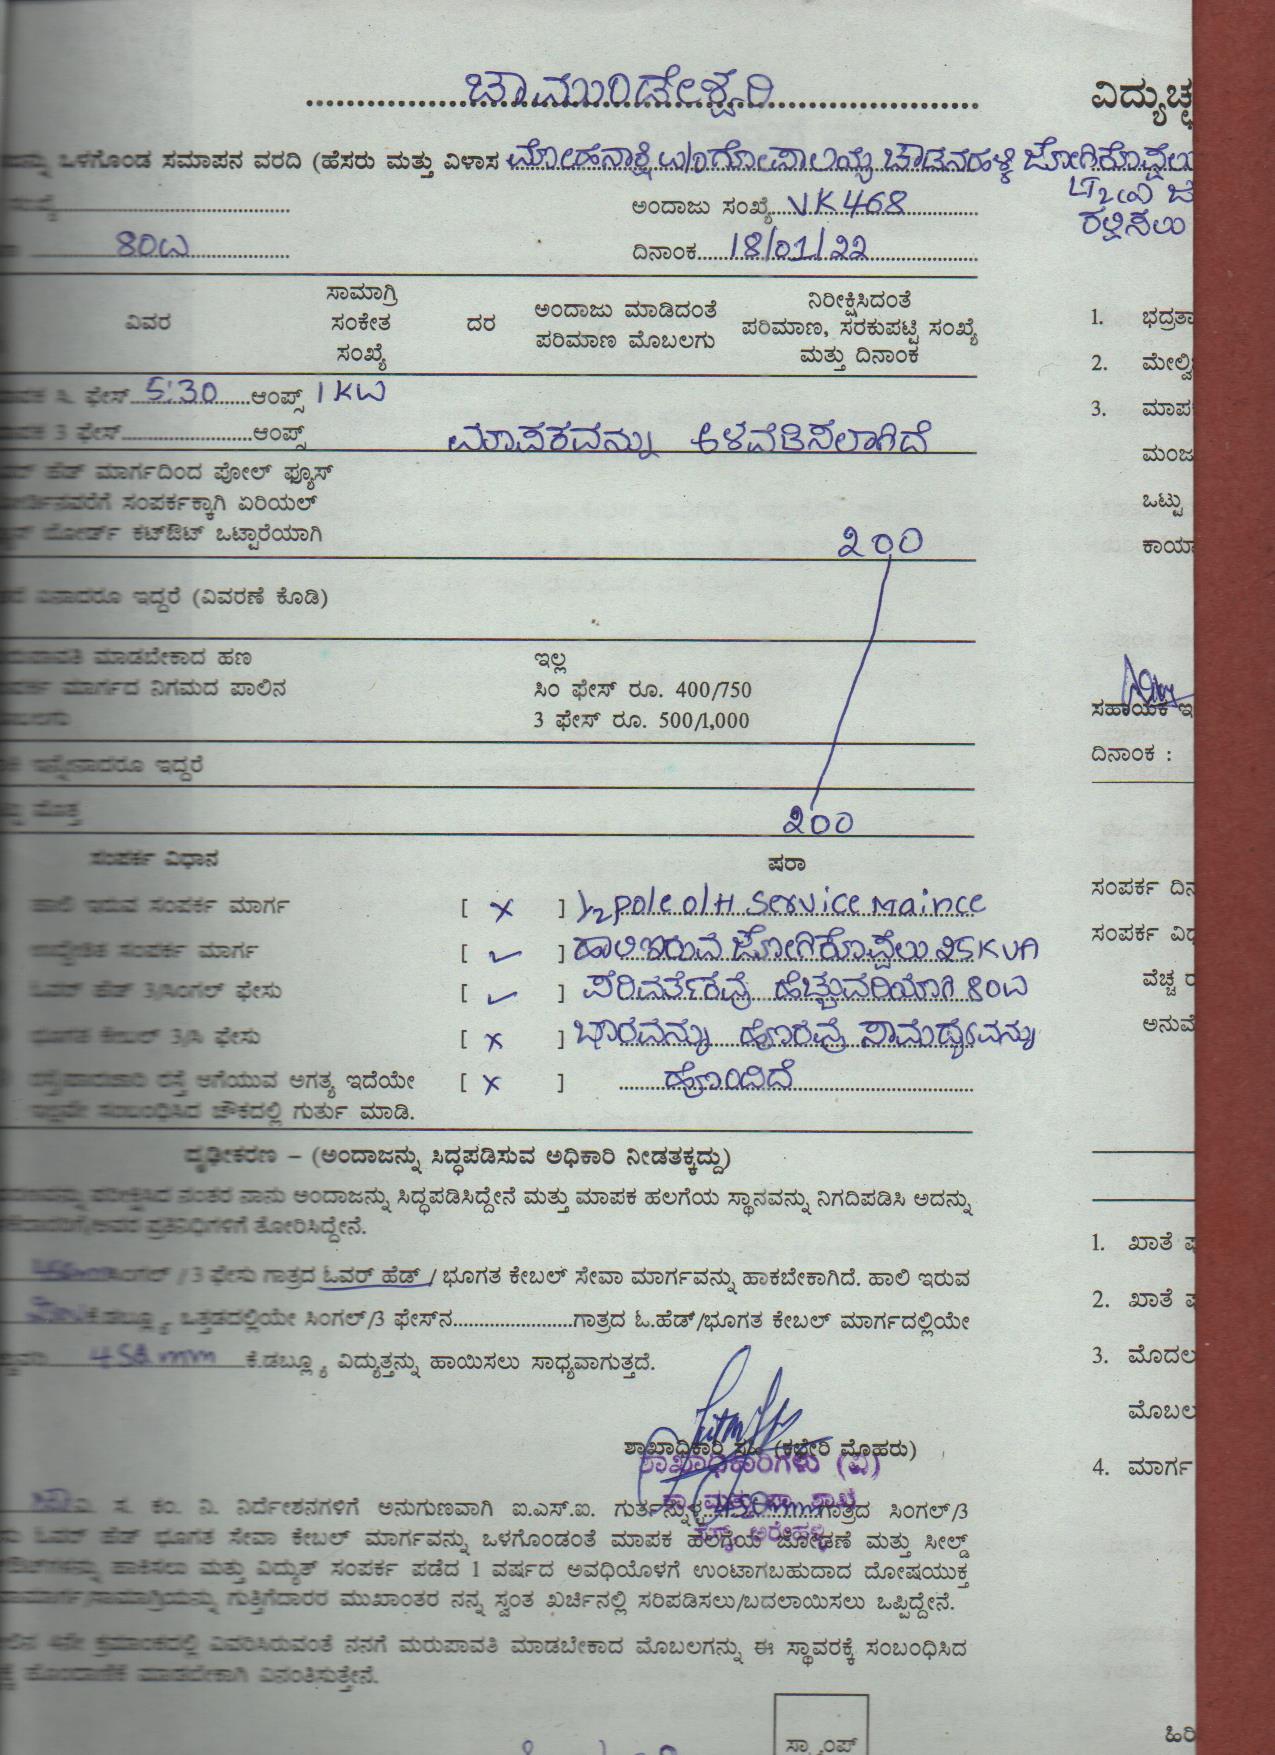 ಚಾಮುಂಡೇಶ್ವರಿ
ವಿದ್ಯುಚ್ಛ
ಒಳಗೊಂಡ ಸಮಾಪನ ವರದಿ (ಹೆಸರು ಮತ್ತು ವಿಳಾಸ ಮೋಹನಾಕ್ಷಿ w/o ಗೋಪಾಲಯ್ಯ ಚೌಡನಹಳ್ಳಿ ಜೋಗಿಕೊಪ್ಪಲು
ಅಂದಾಜು ಸಂಖ್ಯೆ VK468
80W
ದಿನಾಂಕ 18/01/22
ವಿವರ
ಸಾಮಾಗ್ರಿ ಸಂಕೇತ ಸಂಖ್ಯೆ
ದರ
ಅಂದಾಜು ಮಾಡಿದಂತೆ ಪರಿಮಾಣ ಮೊಬಲಗು
ನಿರೀಕ್ಷಿಸಿದಂತೆ ಪರಿಮಾಣ, ಸರಕುಪಟ್ಟಿ ಸಂಖ್ಯೆ ಮತ್ತು ದಿನಾಂಕ
ಸಿ. ಫೇಸ್ 5:30 ಆಂಪ್ಸ್ 1KW
3 ಫೇಸ್ ಆಂಪ್ಸ್
ಮಾಪಕವನ್ನು ಅಳವಡಿಸಲಾಗಿದೆ
ಹೆಡ್ ಮಾರ್ಗದಿಂದ ಪೋಲ್ ಫ್ಯೂಸ್
ಸಂಪರ್ಕಕ್ಕಾಗಿ ಏರಿಯಲ್
ಬೋರ್ಡ್ ಕಟ್‌ಔಟ್ ಒಟ್ಟಾರೆಯಾಗಿ
೨೦೦
ಏನಾದರೂ ಇದ್ದರೆ (ವಿವರಣೆ ಕೊಡಿ)
ಮಾಡಬೇಕಾದ ಹಣ
ಇಲ್ಲ
ಮಾರ್ಗದ ನಿಗಮದ ಪಾಲಿನ
ಸಿಂ ಫೇಸ್ ರೂ. 400/750
3 ಫೇಸ್ ರೂ. 500/1,000
ಇನ್ನೇನಾದರೂ ಇದ್ದರೆ
೨೦೦
ಸಂಪರ್ಕ ವಿಧಾನ
ಷರಾ
ಹಾಲಿ ಇರುವ ಸಂಪರ್ಕ ಮಾರ್ಗ [ x ] 1/2 pole o/H Service Maince
ಉದ್ದೇಶಿತ ಸಂಪರ್ಕ ಮಾರ್ಗ [ ✓ ] ಹಾಲಿಇರುವ ಜೋಗಿಕೊಪ್ಪಲು 25KVA
ಓವರ್ ಹೆಡ್ 3/ಸಿಂಗಲ್ ಫೇಸು [ ✓ ] ಪರಿವರ್ತಕವು ಹೆಚ್ಚುವರಿಯಾಗಿ 80W
ಭೂಗತ ಕೇಬಲ್ 3/ಸಿ ಫೇಸು [ x ] ಭಾರವನ್ನು ಹೊರುವ ಸಾಮರ್ಥ್ಯವನ್ನು
ರಸ್ತೆ ಅಗೆಯುವ ಅಗತ್ಯ ಇದೆಯೇ [ x ] ಹೊಂದಿದೆ
ಸಂಬಂಧಿಸಿದ ಚೌಕದಲ್ಲಿ ಗುರ್ತು ಮಾಡಿ.
ದೃಢೀಕರಣ – (ಅಂದಾಜನ್ನು ಸಿದ್ಧಪಡಿಸುವ ಅಧಿಕಾರಿ ನೀಡತಕ್ಕದ್ದು)
ಪರೀಕ್ಷಿಸಿದ ನಂತರ ನಾನು ಅಂದಾಜನ್ನು ಸಿದ್ಧಪಡಿಸಿದ್ದೇನೆ ಮತ್ತು ಮಾಪಕ ಹಲಗೆಯ ಸ್ಥಾನವನ್ನು ನಿಗದಿಪಡಿಸಿ ಅದನ್ನು
ಪ್ರತಿನಿಧಿಗಳಿಗೆ ತೋರಿಸಿದ್ದೇನೆ.
ಸಿಂಗಲ್ / 3 ಫೇಸು ಗಾತ್ರದ ಓವರ್ ಹೆಡ್ / ಭೂಗತ ಕೇಬಲ್ ಸೇವಾ ಮಾರ್ಗವನ್ನು ಹಾಕಬೇಕಾಗಿದೆ. ಹಾಲಿ ಇರುವ
ಕೆ.ಡಬ್ಲ್ಯೂ ಒತ್ತಡದಲ್ಲಿಯೇ ಸಿಂಗಲ್/3 ಫೇಸ್‌ನ ಗಾತ್ರದ ಓ.ಹೆಡ್/ಭೂಗತ ಕೇಬಲ್ ಮಾರ್ಗದಲ್ಲಿಯೇ
ಕೆ.ಡಬ್ಲ್ಯೂ ವಿದ್ಯುತ್ತನ್ನು ಹಾಯಿಸಲು ಸಾಧ್ಯವಾಗುತ್ತದೆ.
ಶಾಖಾಧಿಕಾರಿ ಸಹಿ (ಕಛೇರಿ ಮೊಹರು)
ಶಾಖಾಧಿಕಾರಿಗಳು (ವಿ)
ಸ. ಕಂ. ನಿ. ನಿರ್ದೇಶನಗಳಿಗೆ ಅನುಗುಣವಾಗಿ ಐ.ಎಸ್.ಐ. ಗುರ್ತನ್ನುಳ್ಳ ಗಾತ್ರದ ಸಿಂಗಲ್/3
ಓವರ್ ಹೆಡ್ ಭೂಗತ ಸೇವಾ ಕೇಬಲ್ ಮಾರ್ಗವನ್ನು ಒಳಗೊಂಡಂತೆ ಮಾಪಕ ಹಲಗೆಯ ಜೋಡಣೆ ಮತ್ತು ಸೀಲ್ಡ್
ಹಾಕಿಸಲು ಮತ್ತು ವಿದ್ಯುತ್ ಸಂಪರ್ಕ ಪಡೆದ 1 ವರ್ಷದ ಅವಧಿಯೊಳಗೆ ಉಂಟಾಗಬಹುದಾದ ದೋಷಯುಕ್ತ
ಗುತ್ತಿಗೆದಾರರ ಮುಖಾಂತರ ನನ್ನ ಸ್ವಂತ ಖರ್ಚಿನಲ್ಲಿ ಸರಿಪಡಿಸಲು/ಬದಲಾಯಿಸಲು ಒಪ್ಪಿದ್ದೇನೆ.
4ನೇ ಕ್ರಮಾಂಕದಲ್ಲಿ ವಿವರಿಸಿರುವಂತೆ ನನಗೆ ಮರುಪಾವತಿ ಮಾಡಬೇಕಾದ ಮೊಬಲಗನ್ನು ಈ ಸ್ಥಾವರಕ್ಕೆ ಸಂಬಂಧಿಸಿದ
ಹೊಂದಾಣಿಕೆ ಮಾಡಬೇಕಾಗಿ ವಿನಂತಿಸುತ್ತೇನೆ.
ಸ್ಟ್ಯಾಂಪ್
1. ಭದ್ರತಾ
2. ಮೇಲ್ವಿ
3. ಮಾಪ
ಮಂಜ
ಒಟ್ಟು
ಕಾರ್ಯಾ
ಸಹಾಯಕ ಇ
ದಿನಾಂಕ :
ಸಂಪರ್ಕ ದಿನ
ಸಂಪರ್ಕ ವಿಧ
ವೆಚ್ಚ ರ
ಅನುಮೆ
1. ಖಾತೆ ಪ
2. ಖಾತೆ ಪ
3. ಮೊದಲ
ಮೊಬಲ
4. ಮಾರ್ಗ
ಹಿರಿ